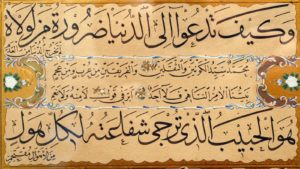 وكيف تدعوا الى الدنيا ضرورة من لولاه
لم تخرج الدنيا من العدم
محمد سيد الكونين والثقلين والفريقين من عرب ومن عجم
نبينا الآمر الناهي فلا احد ابر في قول لا منه ولا نعم
هو الحبيب الذي ترجى شفاعته لكل هول
من الاهوال مقتحم